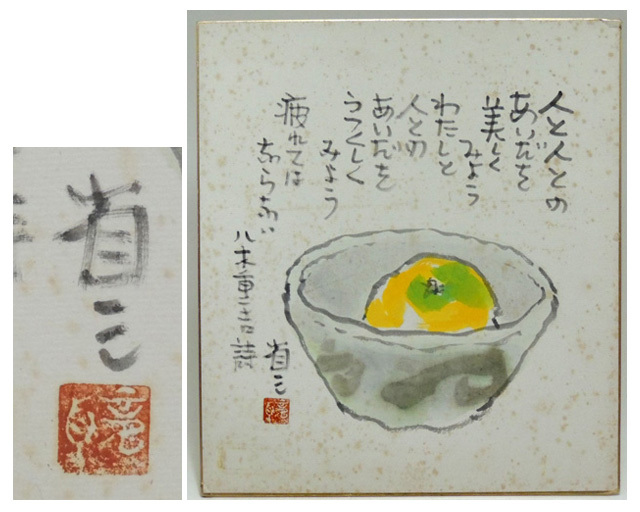 人と人との
あいだを
美しく
みよう
わたしと
人との
あいだを
うつくしく
みよう
疲れては
ならない
八木重吉詩
省三
省三